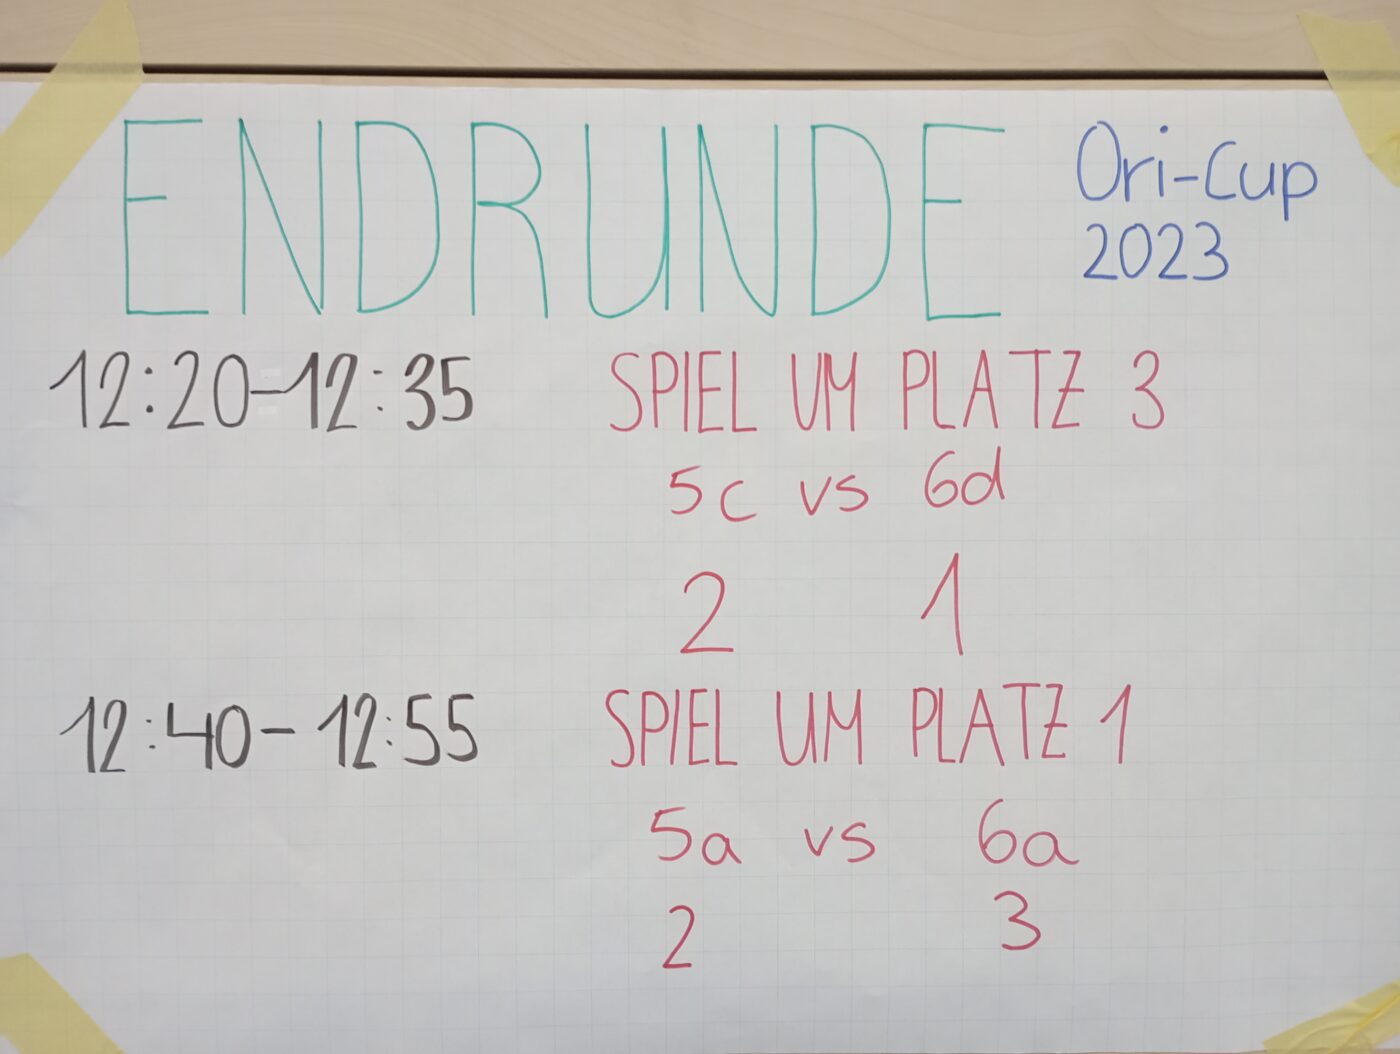 ENDRUNDE
Ori-Cup
2023
12:20-12:35 SPIEL UM PLATZ 3
5c vs 6d
2 1
12:40-12:55 SPIEL UM PLATZ 1
5a vs 6a
2 3